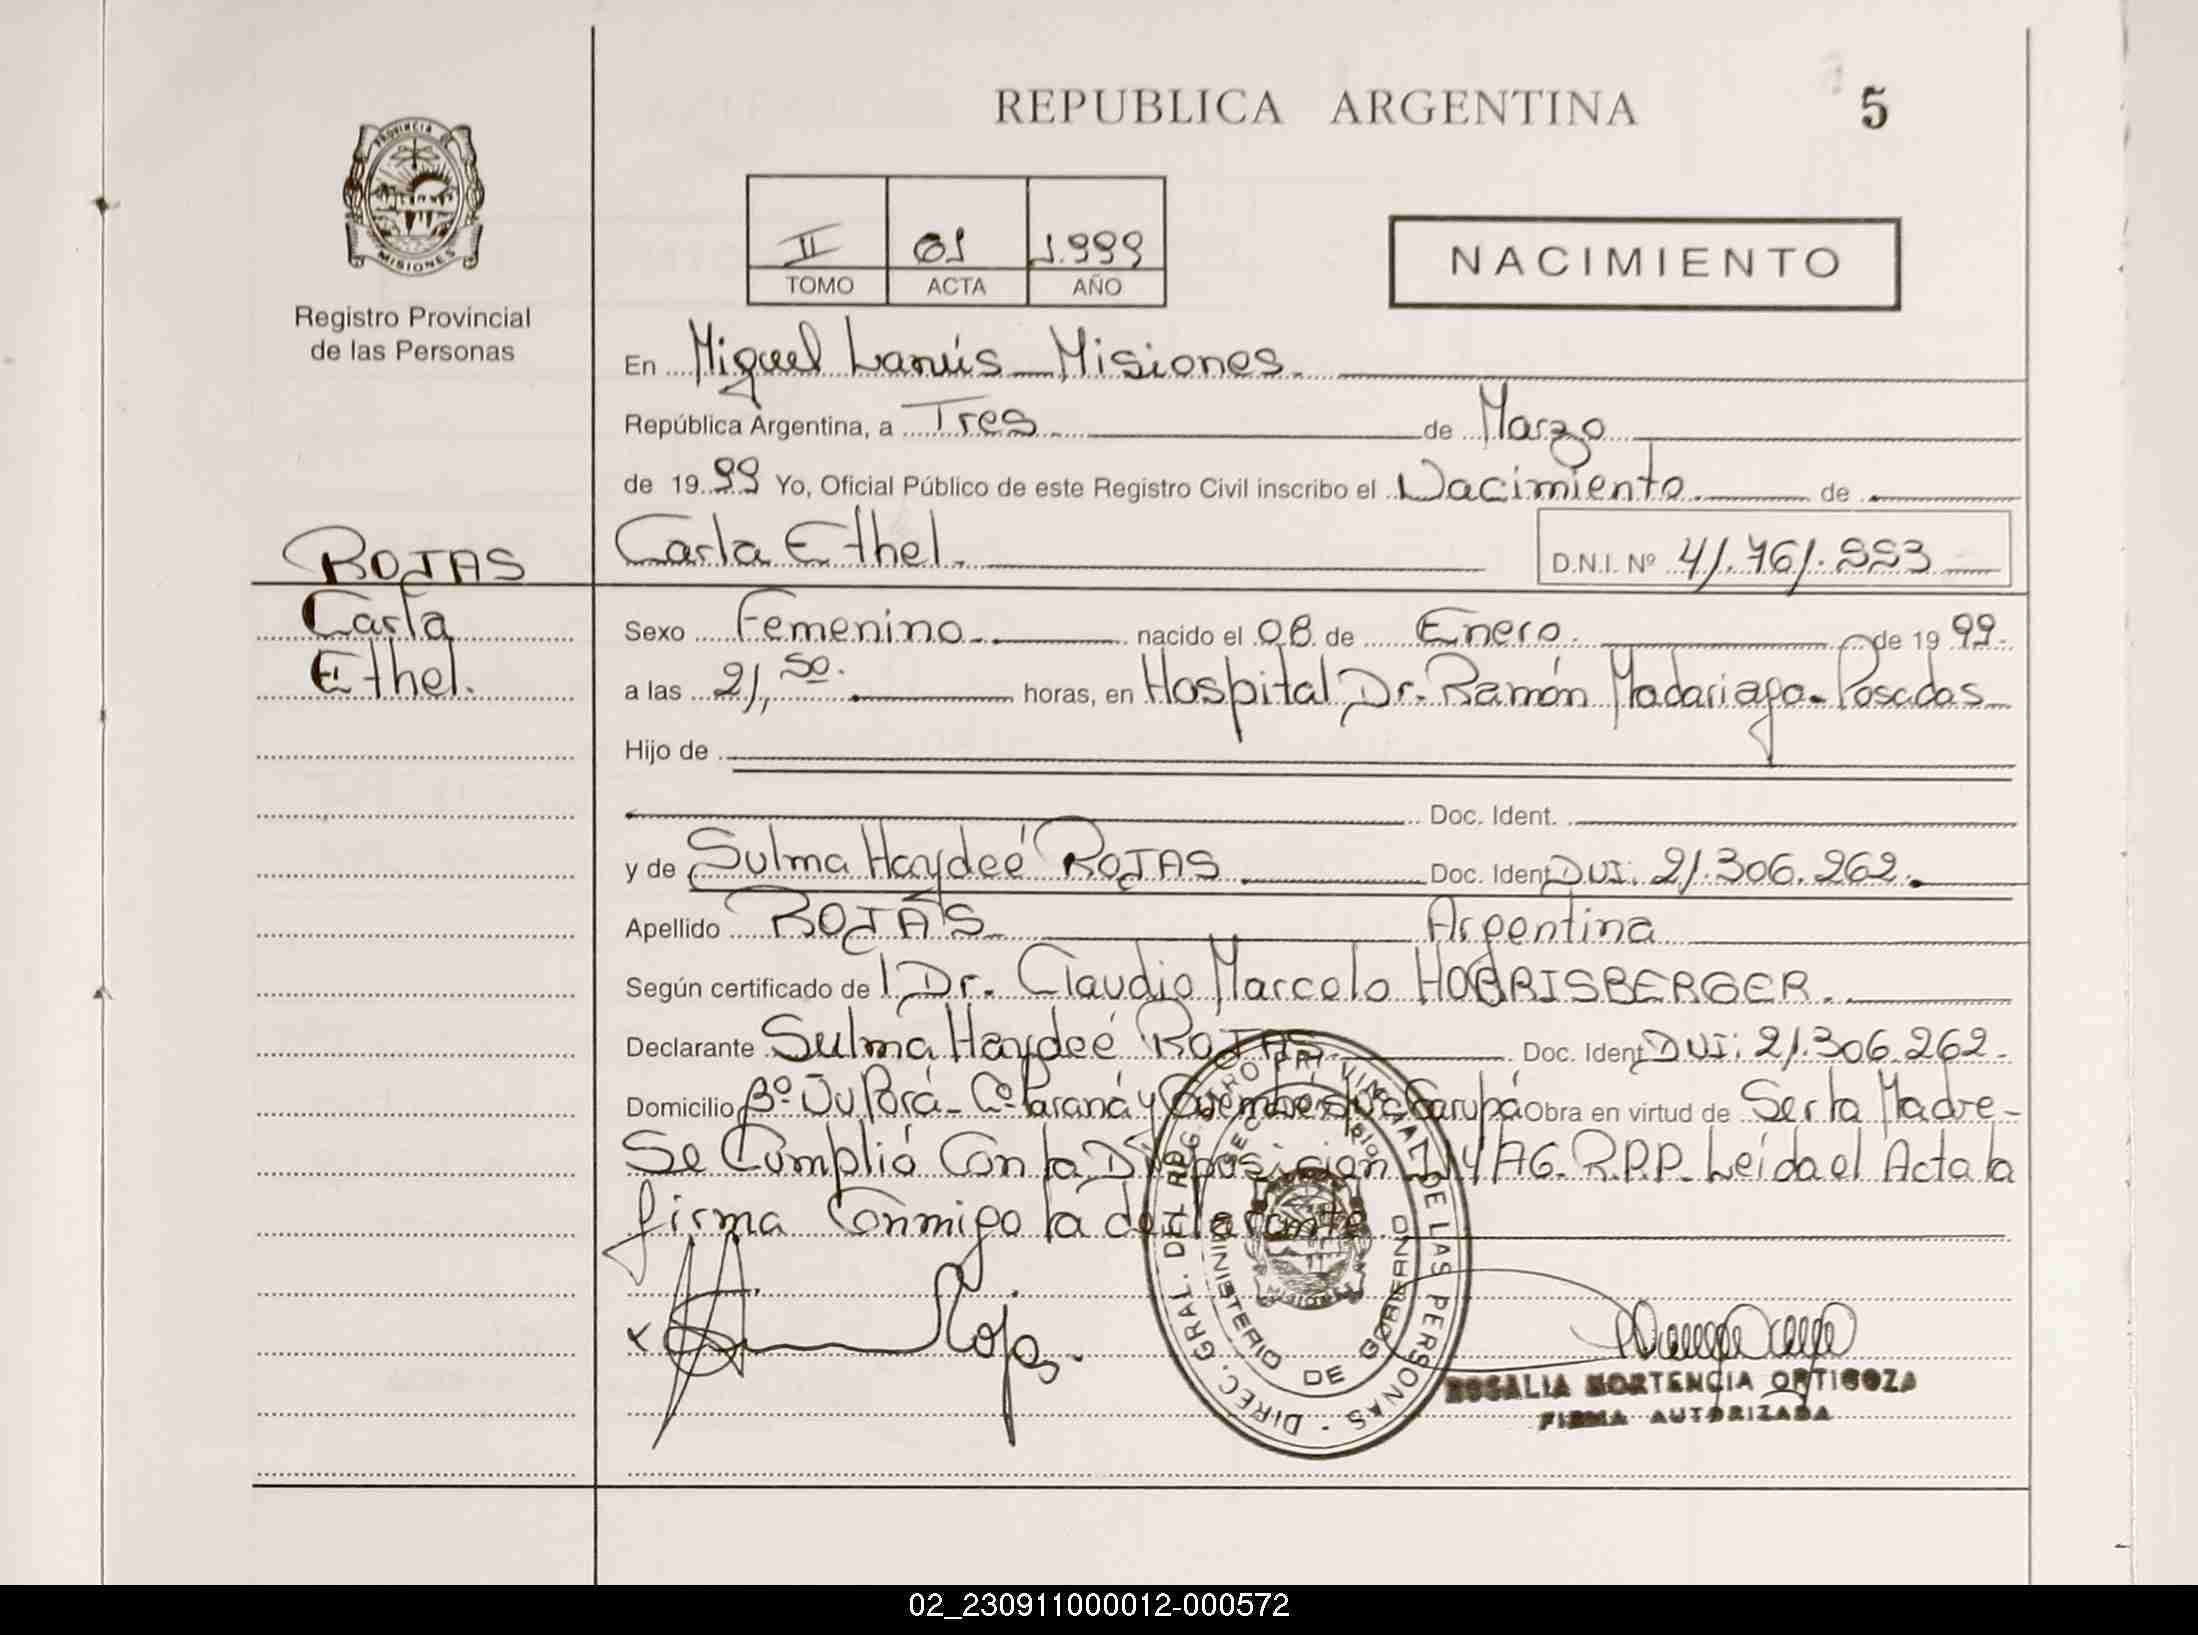 REPUBLICA ARGENTINA
5
PROVINCIA DE
MISIONES
Registro Provincial
de las Personas
II 01 1.999
TOMO ACTA AÑO
NACIMIENTO
En Miguel Lanús - Misiones.
República Argentina, a Tres de Marzo
de 1999 Yo, Oficial Público de este Registro Civil inscribo el Nacimiento. de
ROJAS
Carla Ethel.
D.N.I. Nº 41.761.993
Carla
Ethel.
Sexo Femenino. nacido el 08 de Enero. de 1999.
a las 21,50. horas, en Hospital Dr. Ramón Madariaga - Posadas
Hijo de
Doc. Ident.
y de Sulma Haydeé ROJAS Doc. Ident DNI: 21.306.262.
Apellido ROJAS Argentina
Según certificado de l Dr. Claudio Marcelo
Declarante Sulma Haydeé ROJAS. Doc. Ident DNI: 21.306.262.
Domicilio Bº Ju Porá - Cº Paraná y Garupá Obra en virtud de Ser la Madre -
Se Cumplió Con la Disposición R.P.P. Leída el Acta la
firma Conmigo la declarante.
x Rojas.
DIREC. GRAL. DEL REGISTRO PROVINCIAL DE LAS PERSONAS
MINISTERIO DE GOBIERNO
MISIONES
ROSALIA HORTENCIA ORTIGOZA
FIRMA AUTORIZADA
02_230911000012-000572